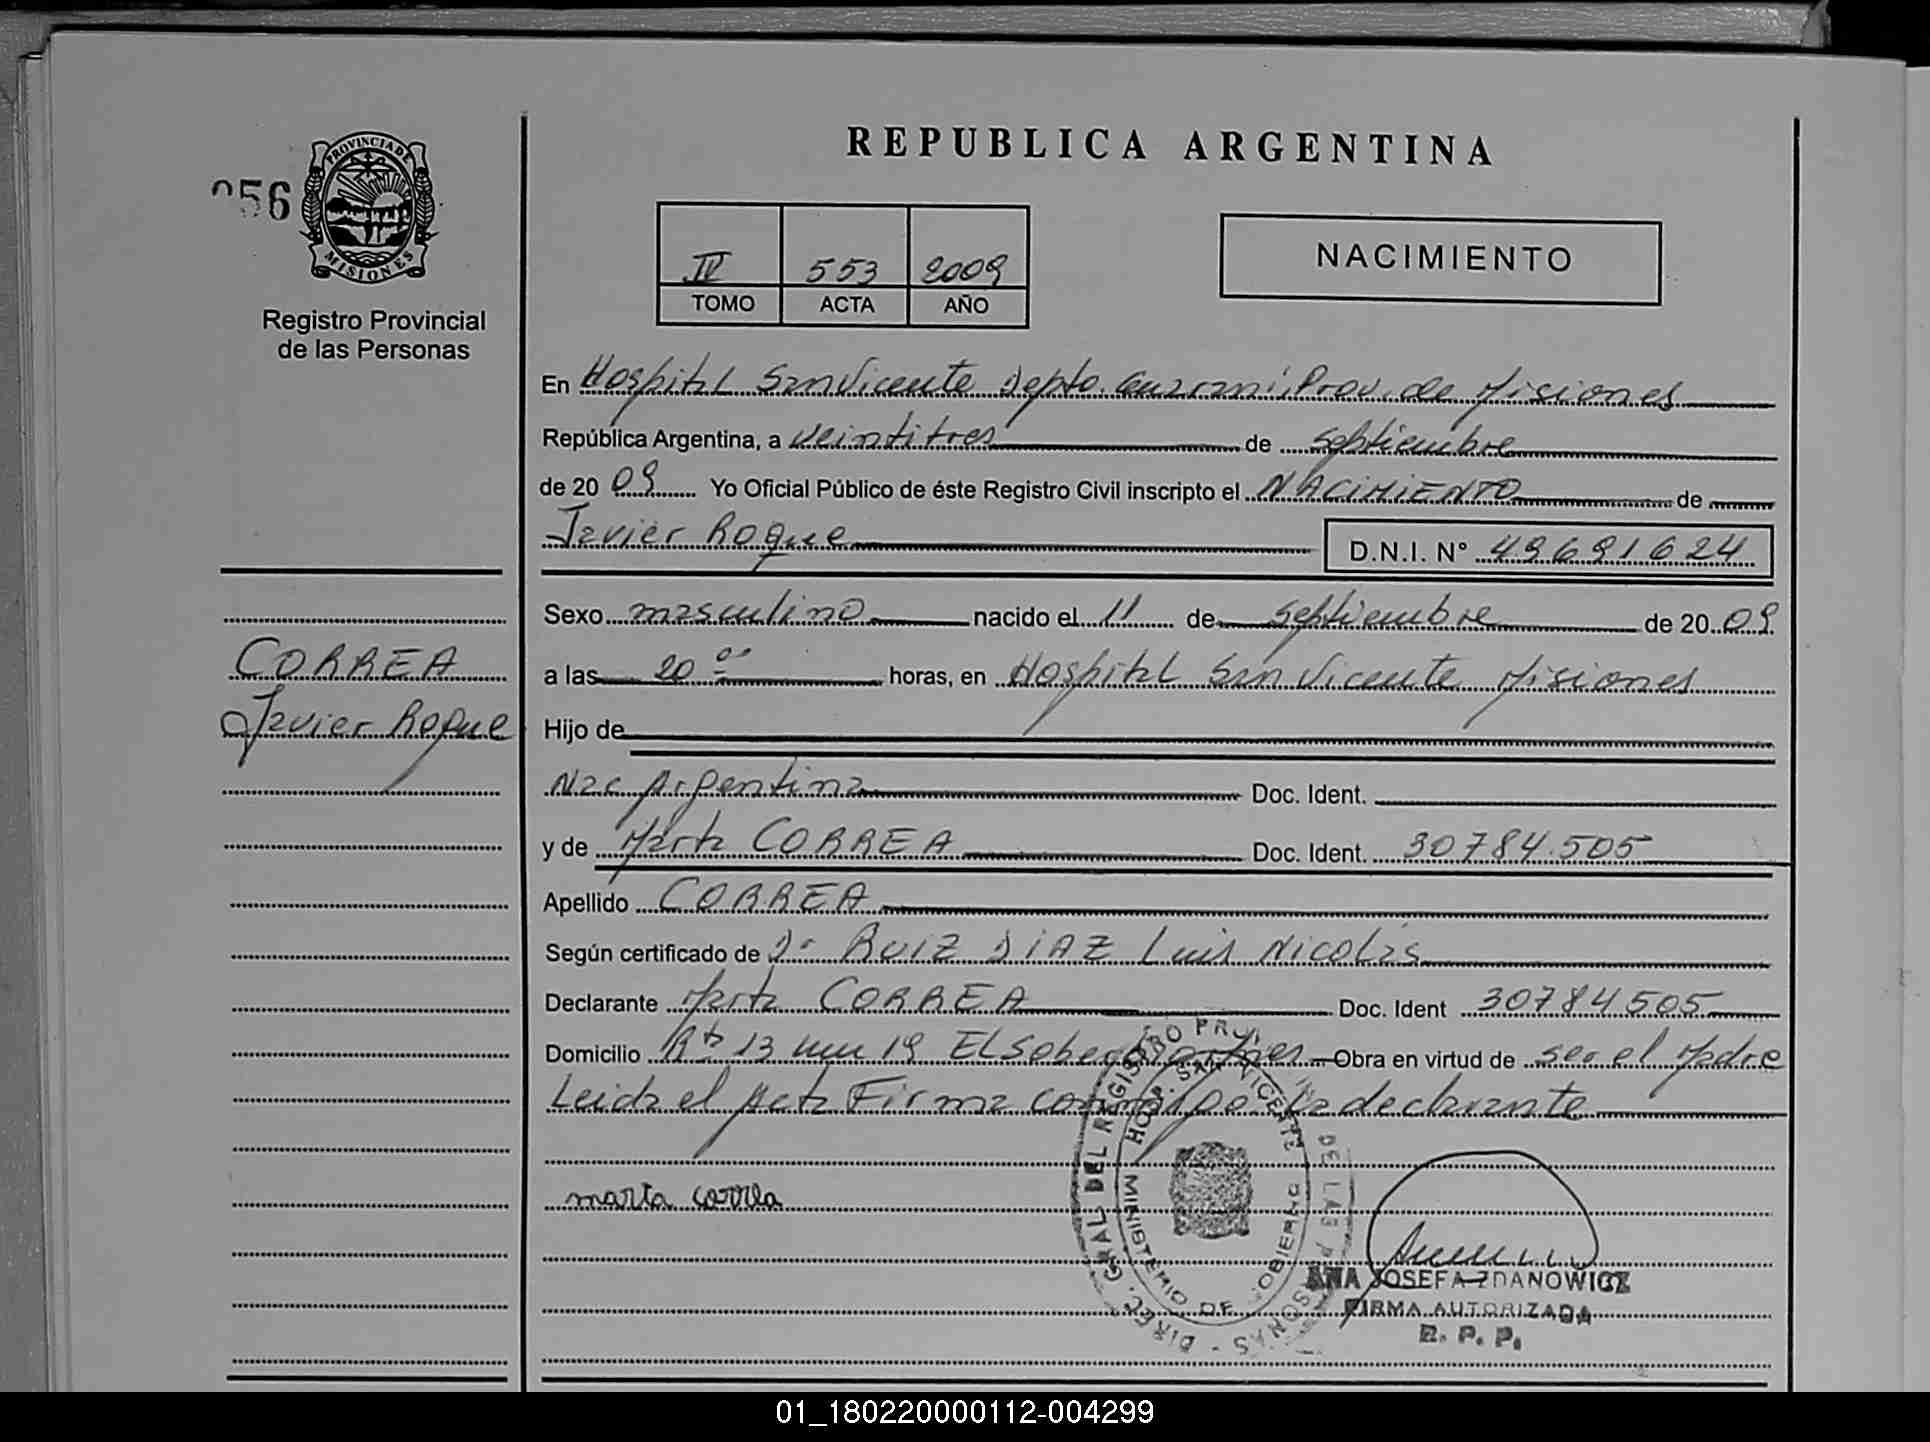 REPUBLICA ARGENTINA
056
PROVINCIA DE
MISIONES
Registro Provincial
de las Personas
IV 553 2009
TOMO ACTA AÑO
NACIMIENTO
En Hospital San Vicente Depto. Guaraní, Prov. de Misiones
República Argentina, a veintitres de septiembre
de 20 09 Yo Oficial Público de éste Registro Civil inscripto el NACIMIENTO de
Javier Roque D.N.I. N° 49691624
Sexo masculino nacido el 11 de septiembre de 20 09
CORREA
a las 20 00 horas, en Hospital San Vicente Misiones
Javier Roque
Hijo de
Nac Argentina Doc. Ident.
y de Marta CORREA Doc. Ident. 30784.505
Apellido CORREA
Según certificado de Dr RUIZ DIAZ Luis Nicolás
Declarante Marta CORREA Doc. Ident 30784505
Domicilio Rta 13 km 19 El Soberbio Obra en virtud de ser el Madre
Leida el Acta Firma la declarante
marta correa
DIREC. GRAL. DEL REGISTRO PROV. DE LAS PERSONAS
HOSP. SAN VICENTE
MINISTERIO DE GOBIERNO
ANA JOSEFA ZDANOWICZ
FIRMA AUTORIZADA
R. P. P.
01_180220000112-004299